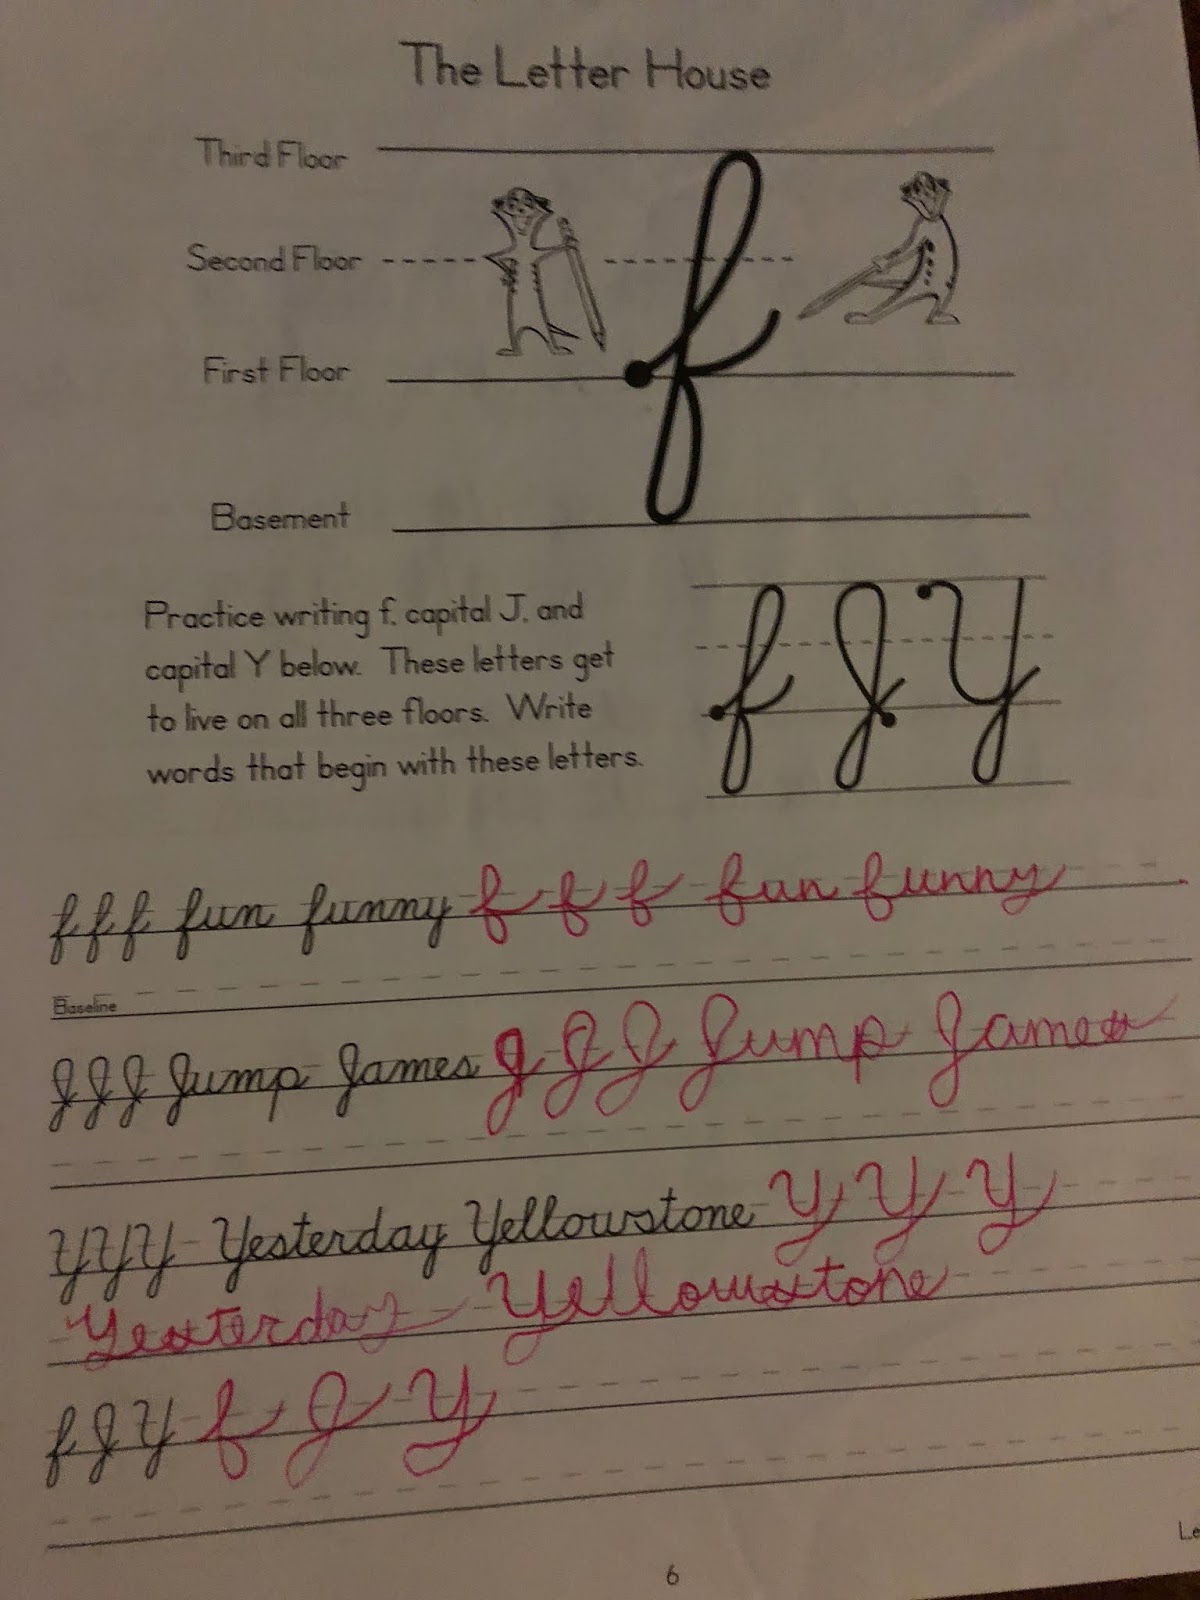 The Letter House
Third Floor
Second Floor
First Floor
f
Basement
Practice writing f, capital J, and
capital Y below. These letters get
to live on all three floors. Write
words that begin with these letters.
f J Y
f f f fun funny f f f fun funny
Baseline
J J J Jump James J J J Jump James
Y Y Y Yesterday Yellowstone Y Y Y
Yesterday Yellowstone
f J Y f J Y
Le
6